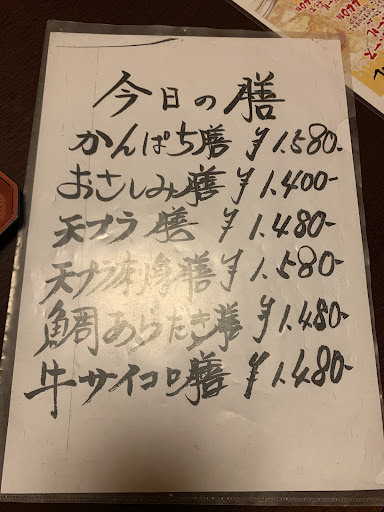 今日の膳
かんぱち膳 ¥1.580-
おさしみ膳 ¥1.400-
天プラ膳 ¥1.480-
天プラ刺身膳 ¥1.580-
鯛あらだき膳 ¥1.480-
牛サイコロ膳 ¥1.480-